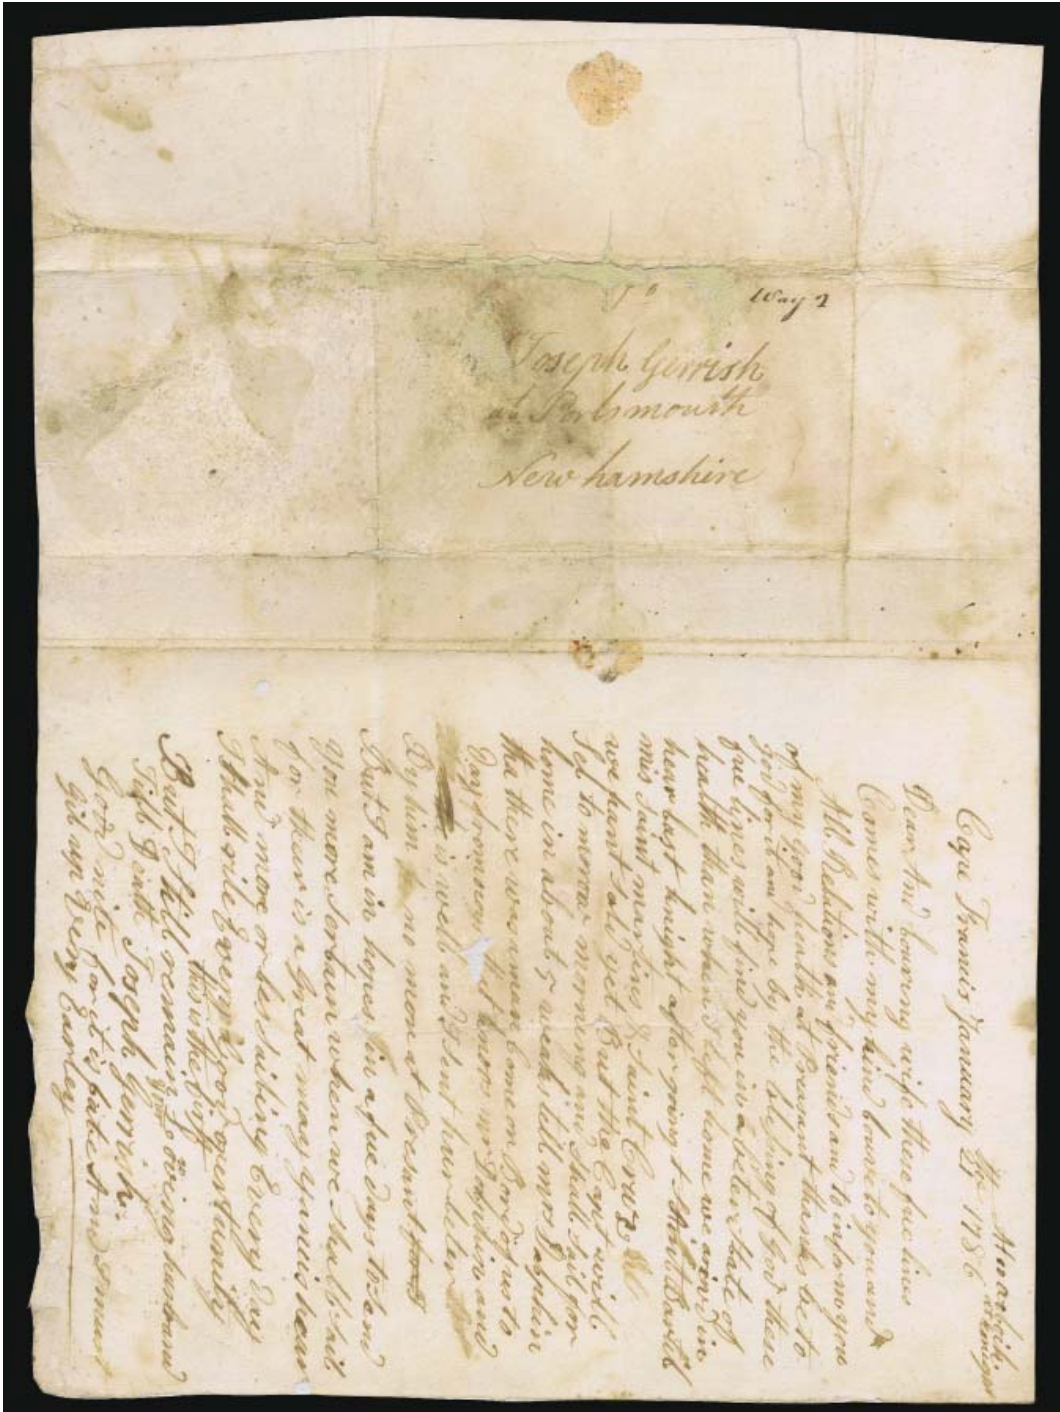 Way 2
Joseph Gerrish
at Portsmouth
New hamshire
Cape Francis January 21 1786
Dear And louving wife these fue lines
Comes with my kind louve to you and
All Relations an friends and to inform you
of my good health at Preasant thanks be to
god for it am hope by the blessing of God these
fue lines will find you in a beter State of
health than when I left home we arivd in
hear last knight after going to Saint Bartil
mis Saint martins & Saint Cruz &c
we haint sold yet But the Capt will
Sel to morrow morning and Shall Sail for
home in about 5 weaks tell mrs Dolphin
tha there was a man Come on Bord of us to
Day from mr Dolphin and
is well and I sent hur leter
By him no mon at Present
But I am in hopes in a fue days to Send
You more Sertain when we Shall Sail
for thear is a Great many Yanuis hear
And more or less ailing Every Day
I Shall rite Every good opertunity
this is the first
But I Still remain Your loveing husband
Till Death Joseph Gerrish
Good nite for it is late And I must
git up Very Earley